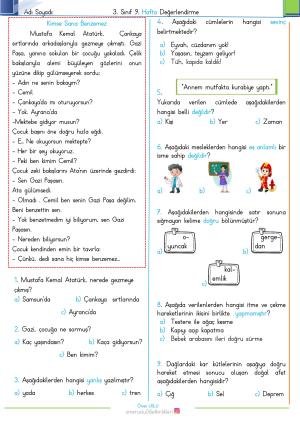 Adı Soyadı:
3. Sınıf 9. Hafta Değerlendirme
Kimse Sana Benzemez
Mustafa Kemal Atatürk, Çankaya
sırtlarında arkadaşlarıyla gezmeye çıkmıştı. Gazi
Paşa, yanına sokulan bir çocuğu yakaladı. Çelik
bakışlarıyla alemi büyüleyen gözlerini onun
yüzüne dikip gülümseyerek sordu:
- Adın ne senin bakayım?
- Cemil.
- Çankaya'da mı oturuyorsun?
- Yok. Ayrancı'da.
-Mektebe gidiyor musun?
Çocuk başını öne doğru hızla eğdi.
- E.. Ne okuyorsun mektepte?
- Her bir şey okuyoruz.
- Peki ben kimim Cemil?
Çocuk zeki bakışlarını Ata'nın üzerinde gezdirdi:
- Sen Gazi Paşasın.
Ata gülümsedi.
- Olmadı . Cemil ben senin Gazi Paşa değilim.
Beni benzettin sen.
- Yok benzetmedim iyi biliyorum, sen Gazi
Paşasın.
- Nereden biliyorsun?
Çocuk kendinden emin bir tavırla:
- Çünkü, dedi sana hiç kimse benzemez..
1. Mustafa Kemal Atatürk, nerede gezmeye
çıkmış?
a) Samsun'da b) Çankaya sırtlarında
c) Ayrancı'da
2. Gazi, çocuğa ne sormuş?
a) Kaç yaşındasın? b) Kaça gidiyorsun?
c) Ben kimim?
3. Aşağıdakilerden hangisi yanlış yazılmıştır?
a) yada b) herkes c) tren
4. Aşağıdaki cümlelerin hangisi sevinç
belirtmektedir?
a) Eyvah, cüzdanım yok!
b) Yaşasın, teyzem geliyor!
c) Tüh, kapıda kaldık!
"Annem mutfakta kurabiye yaptı."
5.
Yukarıda verilen cümlede aşağıdakilerden
hangisi belli değildir?
a) Kişi b) Yer c) Zaman
6. Aşağıdaki mesleklerden hangisi eş anlamlı bir
isme sahip değildir?
a) b) c)
7. Aşağıdakilerden hangisinde satır sonuna
sığmayan kelime doğru bölünmüştür?
a) o-
yuncak
b) gerge-
dan
c) kal-
emlik
8. Aşağıda verilenlerden hangisi itme ve çekme
hareketlerinin ikisini birlikte yapmamıştır?
a) Testere ile ağaç kesme
b) Kapıyı açıp kapatma
c) Bebek arabasını ileri doğru sürme
9. Dağlardaki kar kütlelerinin aşağıya doğru
hareket etmesi sonucu oluşan doğal afet
aşağıdakilerden hangisidir?
a) Çığ b) Sel c) Deprem